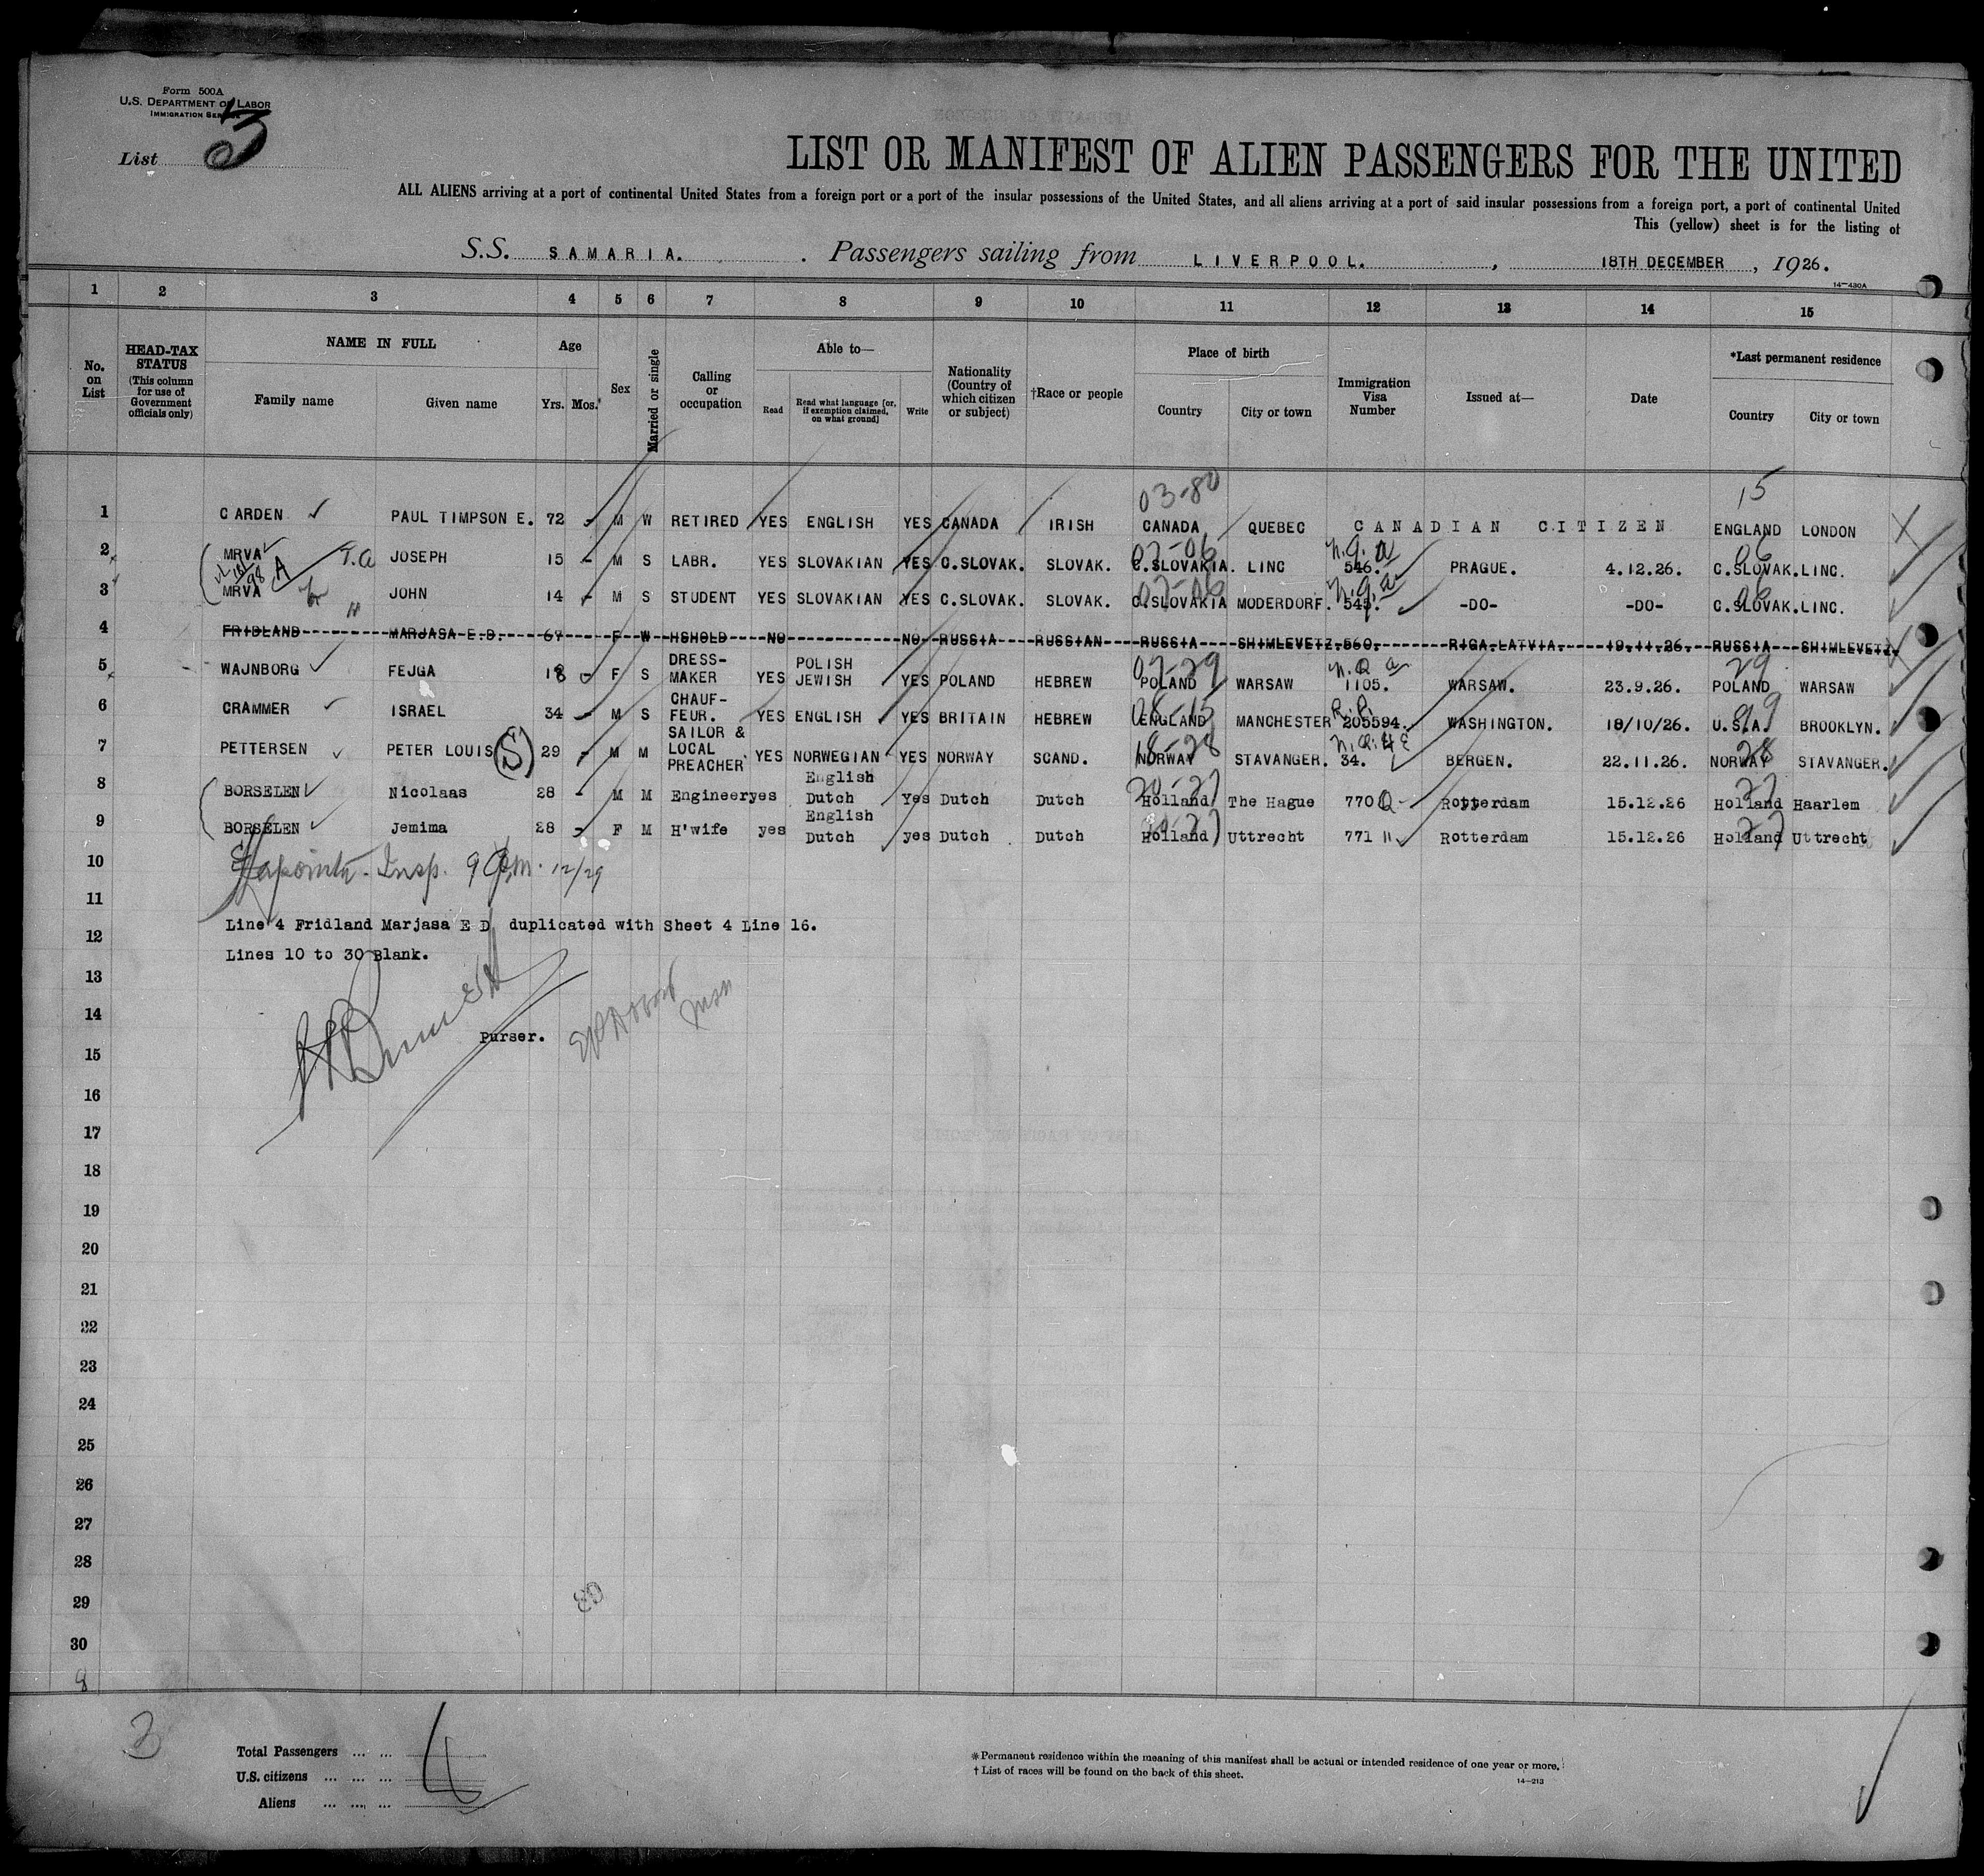 Form 500A
U.S. DEPARTMENT OF LABOR
IMMIGRATION SERVICE
List 3
LIST OR MANIFEST OF ALIEN PASSENGERS FOR THE UNITED
ALL ALIENS arriving at a port of continental United States from a foreign port or a port of the insular possessions of the United States, and all aliens arriving at a port of said insular possessions from a foreign port, a port of continental United
This (yellow) sheet is for the listing of
S.S. SAMARIA. Passengers sailing from LIVERPOOL. , 18TH DECEMBER , 1926.
14—430A
1 2 3 4 5 6 7 8 9 10 11 12 13 14 15
No. on List
HEAD-TAX STATUS (This column for use of Government officials only)
NAME IN FULL
Family name Given name
Age
Yrs. Mos.
Sex
Married or single
Calling or occupation
Able to—
Read Read what language [or, if exemption claimed, on what ground] Write
Nationality (Country of which citizen or subject)
†Race or people
Place of birth
Country City or town
Immigration Visa Number
Issued at—
Date
*Last permanent residence
Country City or town
03-80 15
1 CARDEN PAUL TIMPSON E. 72 - M W RETIRED YES ENGLISH YES CANADA IRISH CANADA QUEBEC CANADIAN CITIZEN ENGLAND LONDON
07-06 N.Q.a 06
2 MRVA T.a JOSEPH 15 - M S LABR. YES SLOVAKIAN YES C.SLOVAK. SLOVAK. C.SLOVAKIA. LINC 546. PRAGUE. 4.12.26. C.SLOVAK. LINC.
07-06 N.Q.a 06
3 MRVA JOHN 14 - M S STUDENT YES SLOVAKIAN YES C.SLOVAK. SLOVAK. C.SLOVAKIA MODERDORF. 545. -DO- -DO- C.SLOVAK. LINC.
4 FRIDLAND MARJASA E.D. 67 F W HSHOLD NO NO RUSSIA RUSSIAN RUSSIA SHIMLEVETZ 560. RIGA-LATVIA. 19.11.26. RUSSIA SHIMLEVETZ.
07-29 N.Q a 29
5 WAJNBORG FEJGA 18 - F S DRESS-MAKER YES POLISH JEWISH YES POLAND HEBREW POLAND WARSAW 1105. WARSAW. 23.9.26. POLAND WARSAW
08-15 R.P. 99
6 CRAMMER ISRAEL 34 - M S CHAUF-FEUR. YES ENGLISH YES BRITAIN HEBREW ENGLAND MANCHESTER 205594. WASHINGTON. 18/10/26. U.S.A. BROOKLYN.
18-28 28
7 PETTERSEN PETER LOUIS S 29 - M M SAILOR & LOCAL PREACHER YES NORWEGIAN YES NORWAY SCAND. NORWAY STAVANGER. 34. BERGEN. 22.11.26. NORWAY STAVANGER.
20-27 27
8 BORSELEN Nicolaas 28 - M M Engineer yes English Dutch Yes Dutch Dutch Holland The Hague 770 Q- Rotterdam 15.12.26 Holland Haarlem
27
9 BORSELEN Jemima 28 - F M H'wife yes English Dutch yes Dutch Dutch Holland Uttrecht 771 " Rotterdam 15.12.26 Holland Uttrecht
10 Insp. 9 12/29
11
Line 4 Fridland Marjasa E D duplicated with Sheet 4 Line 16.
12
Lines 10 to 30 Blank.
13
14
Purser.
15
16
17
18
19
20
21
22
23
24
25
26
27
28
29
30
3
Total Passengers ... ...
U.S. citizens ... ... ...
Aliens ... ... ...
*Permanent residence within the meaning of this manifest shall be actual or intended residence of one year or more.
† List of races will be found on the back of this sheet.
14—213